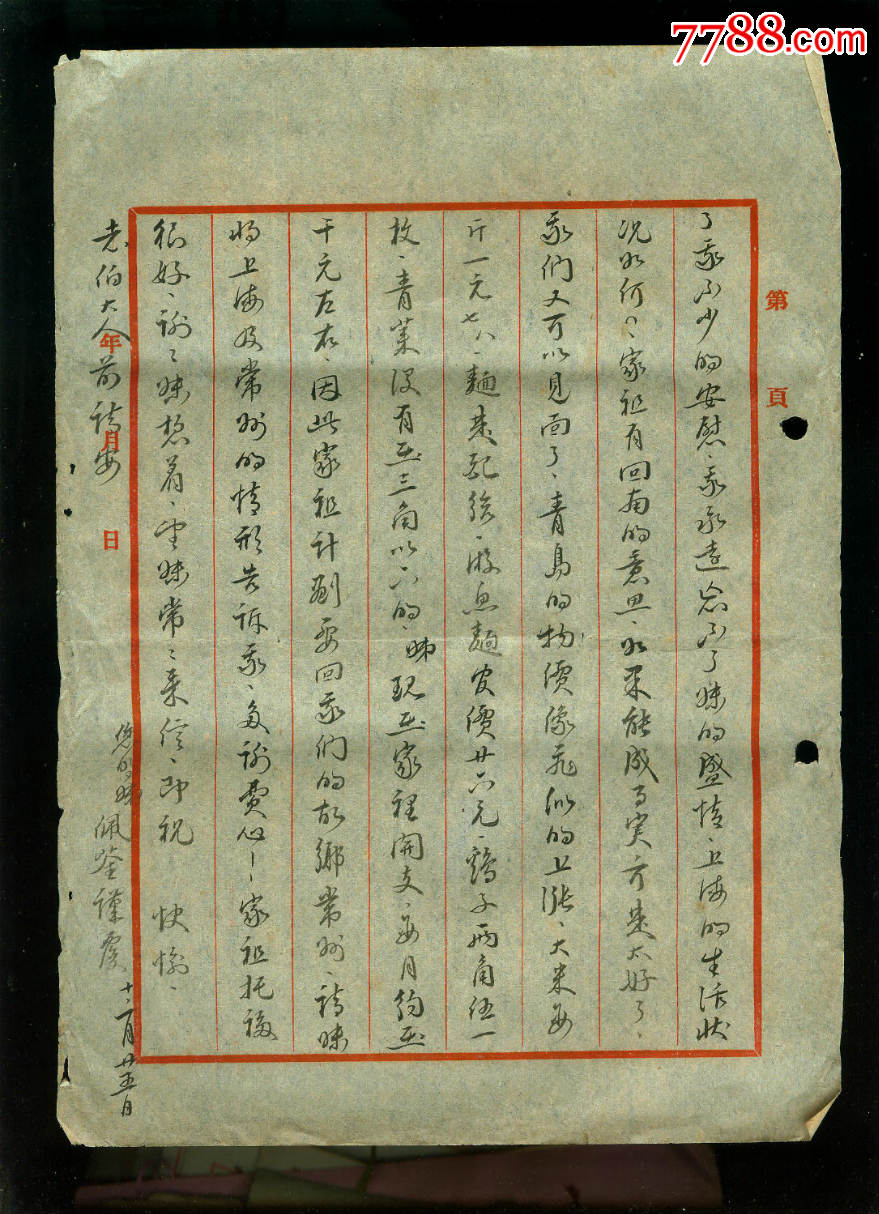 7788.com
第 頁
了我不少的安慰、我永遠忘不了妹的盛情、上海的生活狀
况如何？家祖有回南的意思、如果能成事实,才是太好了、
我們又可以見面了、青島的物價像飛似的上漲、大米每
斤一元七八、麵是配給、麵官價廿六元、鷄子兩角伍一
枚、青菜没有在三角以下的、姊現在家裡開支、每月約在
千元左右、因此家祖計劃要回我們的故鄉常州、請妹
将上海及常州的情形告訴我、多謝費心！家祖托福
很好、謝〻妹惦着、望妹常〻來信、即祝 快愉、
老伯大人前請安
年 月 日
您的姊 佩 謹覆 十二月廿五日